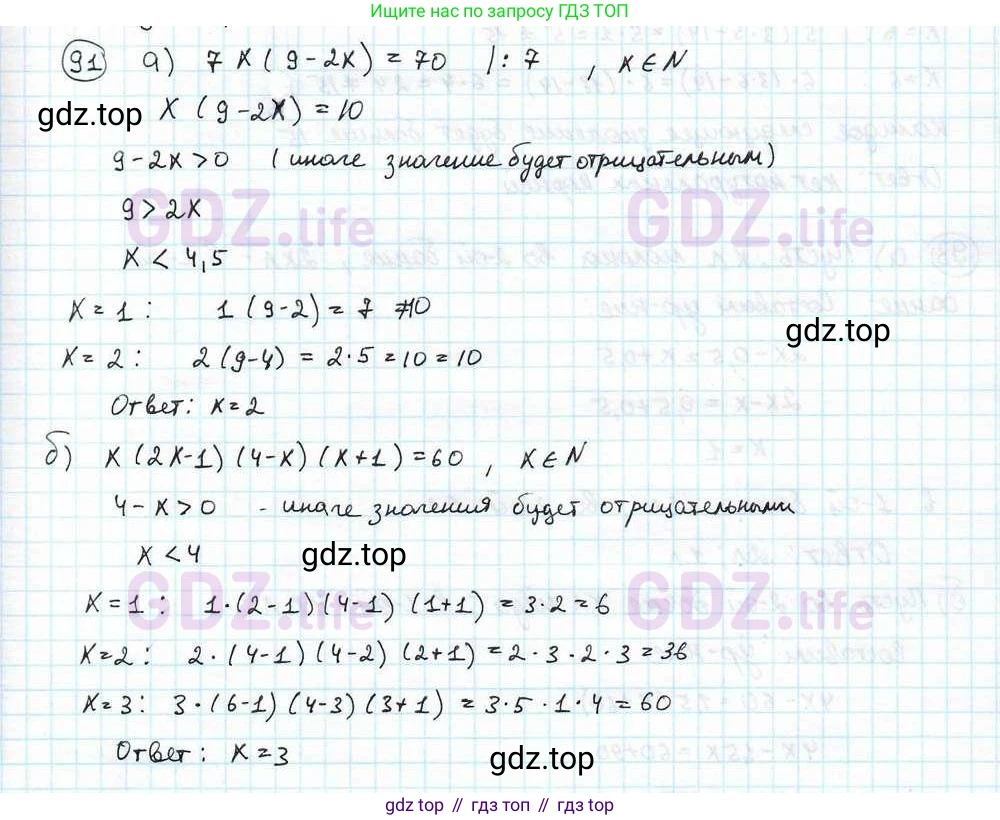 Ищите нас по запросу ГДЗ ТОП
91 а) 7x(9-2x) = 70 |:7 , x∈N
gdz.top x(9-2x) = 10
9-2x>0 (иначе значение будет отрицательным)
9>2x
GDZ.life GDZ.life
x < 4,5
x=1: 1(9-2) = 7 ≠10
gdz.top
x=2: 2(9-4) = 2·5=10=10
Ответ: x=2
б) x(2x-1)(4-x)(x+1)=60, x∈N
4-x>0 - иначе значения будет отрицательными
x<4 gdz.top
GDZ.life GDZ.life
x=1: 1·(2-1)(4-1)(1+1)=3·2=6
x=2: 2·(4-1)(4-2)(2+1)=2·3·2·3=36
x=3: 3·(6-1)(4-3)(3+1)=3·5·1·4=60
Ответ: x=3
gdz.top
gdz.top // гдз топ // гдз.top